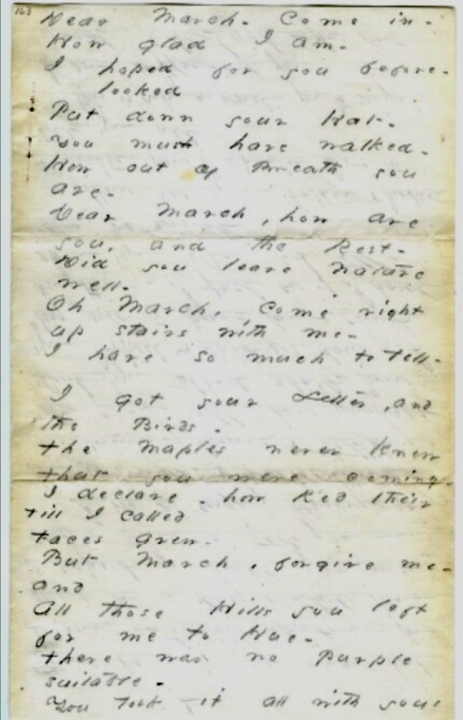 163
Dear March - Come in -
How glad I am -
I hoped for you before -
looked
Put down your Hat -
You must have walked -
How out of Breath you
are -
Dear March, how are
you, and the Rest -
Did you leave Nature
well -
Oh March, Come right
up stairs with me -
I have so much to tell -
I got your Letter, and
the Birds -
the Maples never knew
that you were coming -
I declare - how Red their
till I called
Faces grew -
But March, forgive me -
and
All those Hills you left
for me to Hue -
there was no Purple
suitable -
You took it all with you